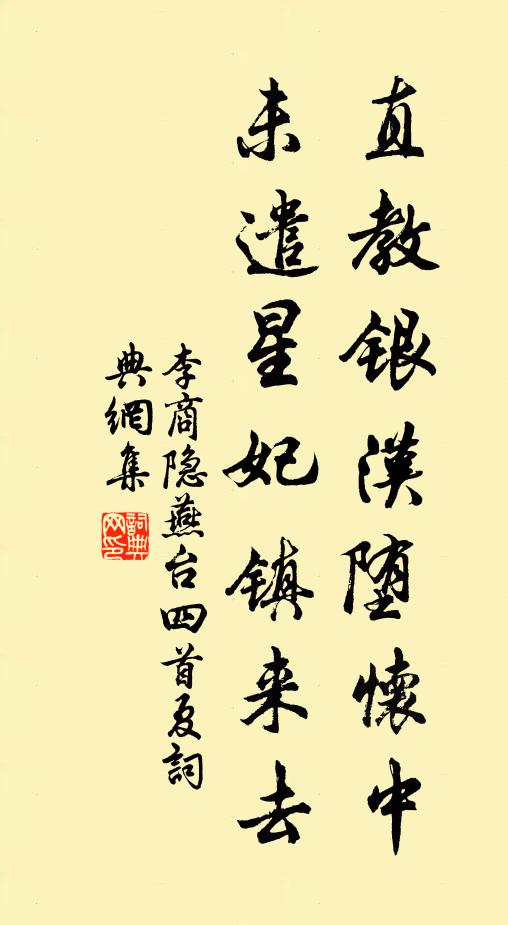 直教銀漢堕懷中
未遣星妃镇来去
李商隐燕台四首夏詞
典網集
詞典
网印